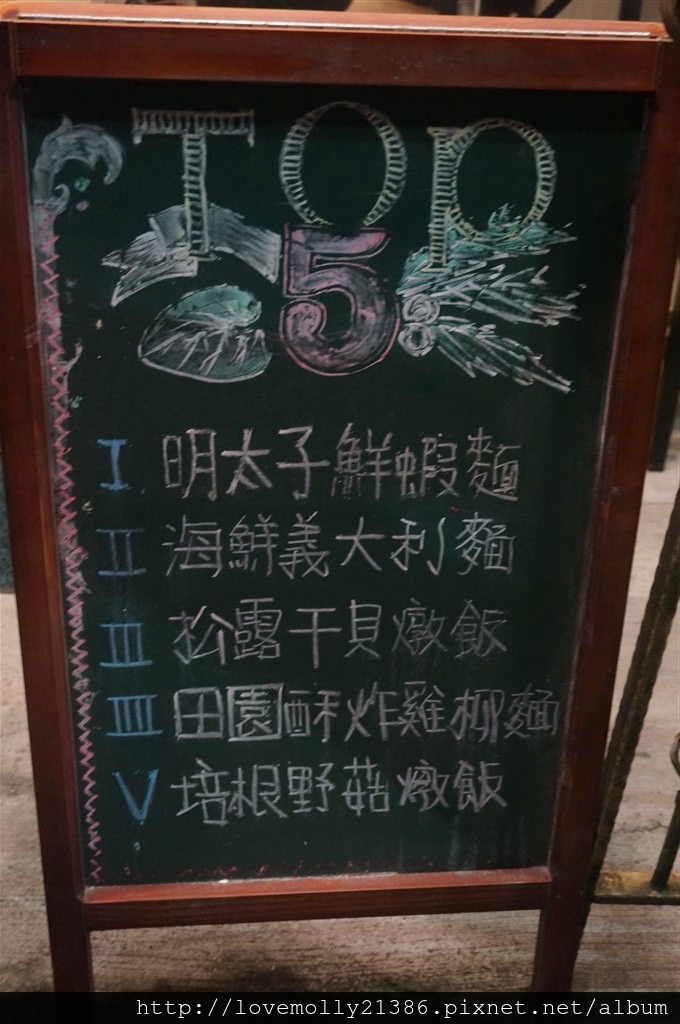 TOP
5
I 明太子鮮蝦麵
II 海鮮義大利麵
III 松露干貝燉飯
IIII 田園酥炸雞柳麵
V 培根野菇燉飯
http://lovemolly21386.pixnet.net/album